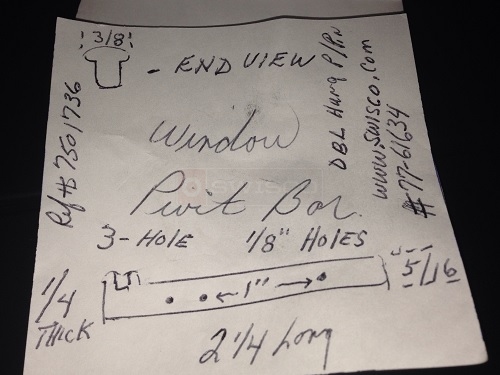 3/8
- END VIEW
Window
Pivit Bar.
3-HOLE 1/8" HOLES
1"
5/16
1/4
THICK
2 1/4 Long
Ref# 7501736
DBL Hung P/RN
www.swisco.com
#77-61634